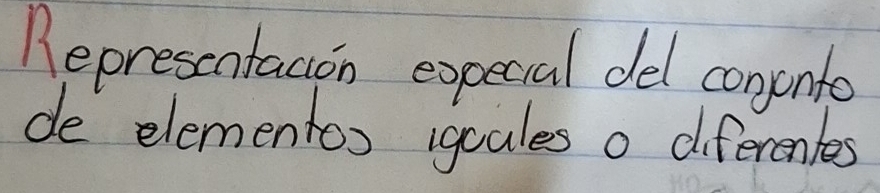 Representación especial del conjunto
de elementos iguales o diferentes